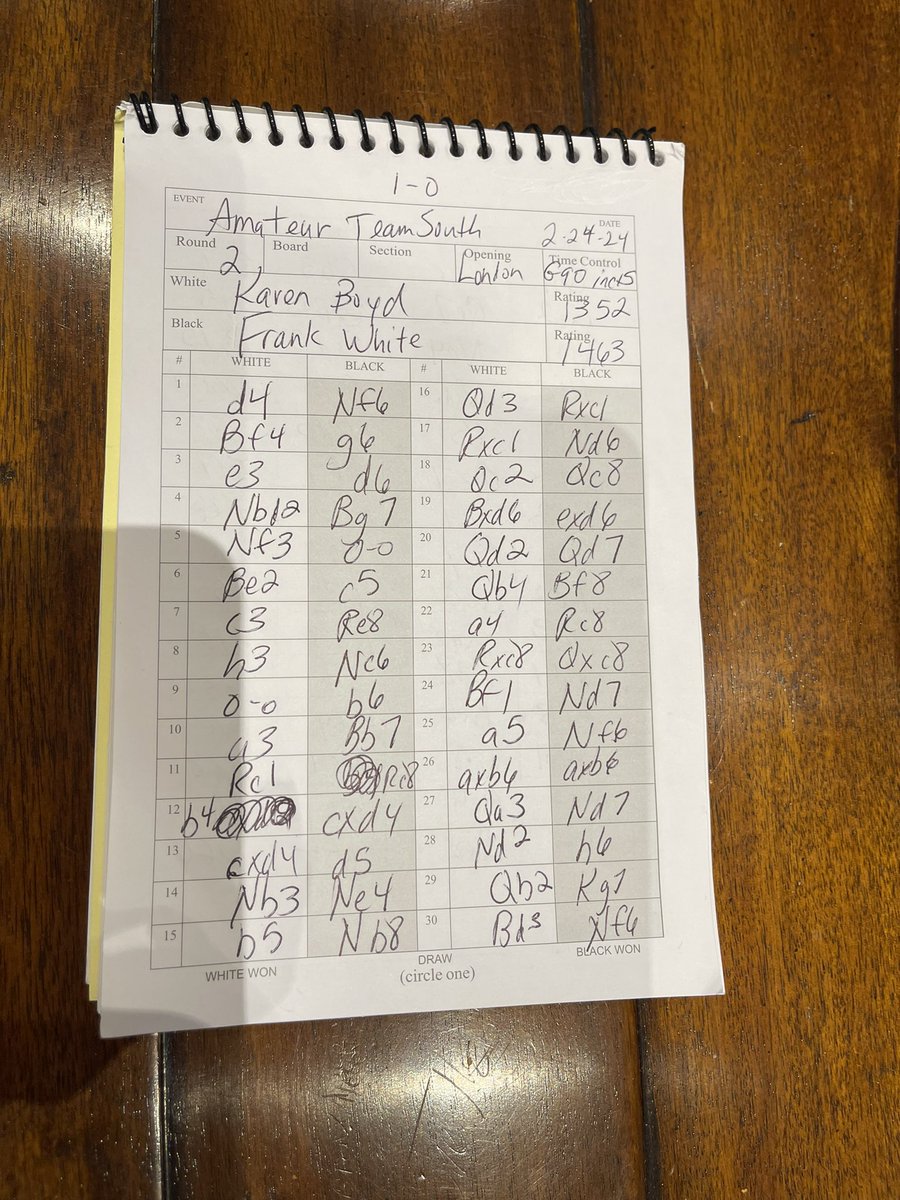 1-0
EVENT Amateur Team South DATE 2-24-24
Round 2 Board Section Opening London Time Control G90 inc15
White Karen Boyd Rating 1352
Black Frank White Rating 1463
# WHITE BLACK # WHITE BLACK
1 d4 Nf6 16 Qd3 Rxc1
2 Bf4 g6 17 Rxc1 Nd6
3 e3 d6 18 Qc2 Qc8
4 Nbd2 Bg7 19 Bxd6 exd6
5 Nf3 0-0 20 Qd2 Qd7
6 Be2 c5 21 Qb4 Bf8
7 c3 Re8 22 a4 Rc8
8 h3 Nc6 23 Rxc8 Qxc8
9 0-0 b6 24 Bf1 Nd7
10 a3 Bb7 25 a5 Nf6
11 Rc1 Rc8 26 axb6 axb6
12 b4 cxd4 27 Qa3 Nd7
13 cxd4 d5 28 Nd2 h6
14 Nb3 Ne4 29 Qb2 Kg7
15 b5 Nb8 30 Bd3 Nf6
WHITE WON DRAW BLACK WON
(circle one)